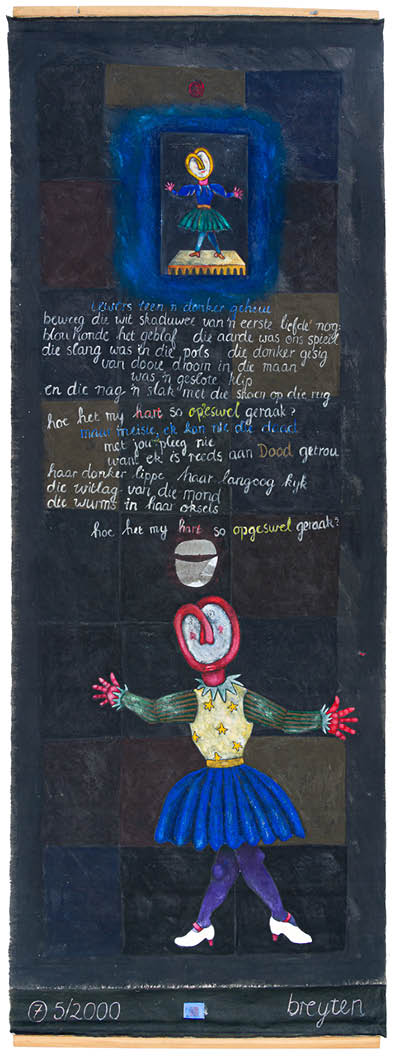 lewers teen 'n donker geheue
beweeg die wit skaduwee van 'n eerste liefde nog:
blou honde het geblaf die aarde was ons spieël
die slang was in die pols die donker gesig
van dooie droom in die maan
was 'n geslote klip
en die nag 'n slak met die skoen op die rug
hoe het my hart so opgeswel geraak?
maar meisie, ek kon nie die daad
met jou pleeg nie
want ek is reeds aan Dood getrou
haar donker lippe haar langoog kyk
die witlag van die mond
die wurms in haar oksels
hoe het my hart so opgeswel geraak?
7 5/2000
breyten